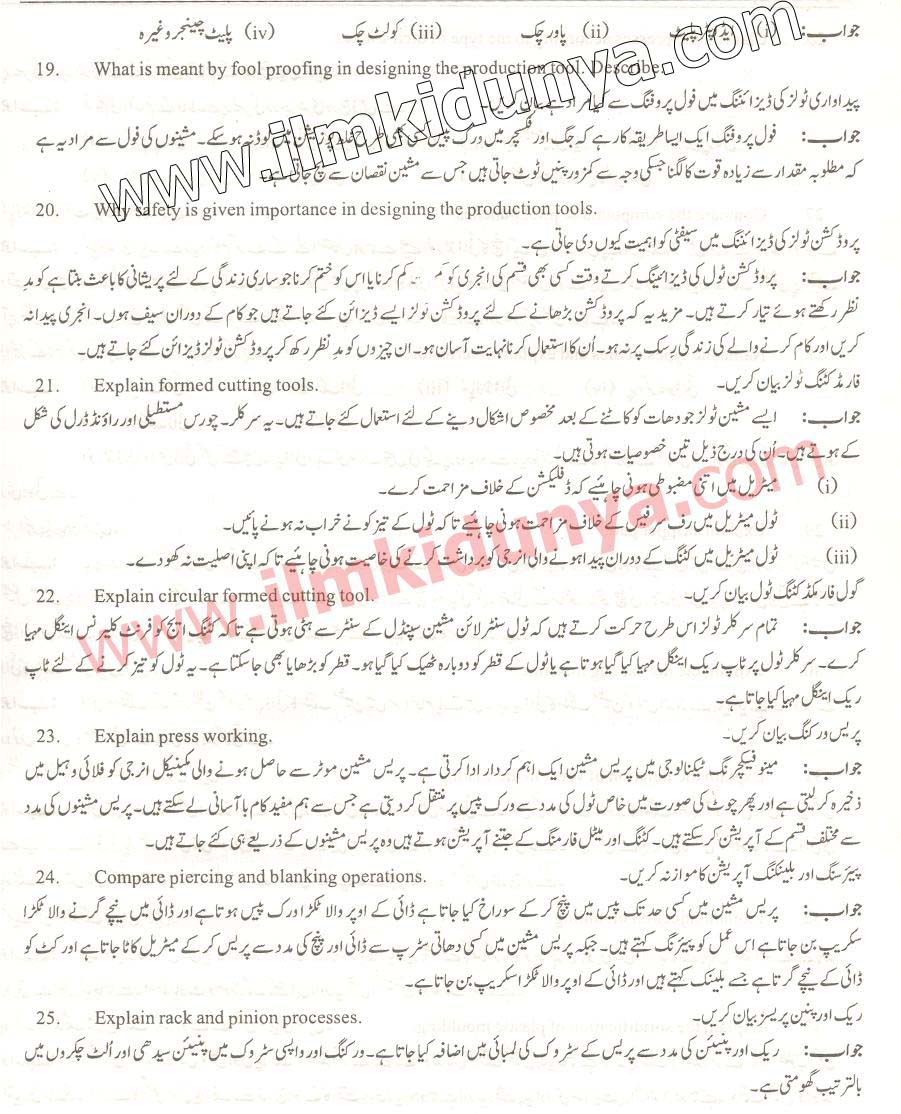 جواب: (i) پلیٹ (ii) پاور چک (iii) کولٹ چک (iv) پلیٹ چینجر وغیرہ
19. What is meant by fool proofing in designing the production tool. Describe.
پیداواری ٹولز کی ڈیزائننگ میں فول پروفنگ سے کیا مراد ہے بیان کریں۔
جواب: فول پروفنگ ایک ایسا طریقہ کار ہے کہ جگ اور فکسچر میں ورک پیس کسی بھی طرح غلط پوزیشن میں لوڈ نہ ہو سکے۔ مشینوں کی فول سے مراد یہ ہے
کہ مطلوبہ مقدار سے زیادہ قوت کا لگنا جسکی وجہ سے کمزور پنیں ٹوٹ جاتی ہیں جس سے مشین نقصان سے بچ جاتی ہے۔
20. Why safety is given importance in designing the production tools.
پروڈکشن ٹولز کی ڈیزائننگ میں سیفٹی کو اہمیت کیوں دی جاتی ہے۔
جواب: پروڈکشن ٹول کی ڈیزائینگ کرتے وقت کسی بھی قسم کی انجری کو کم کرنا یا اس کو ختم کرنا جو ساری زندگی کے لئے پریشانی کا باعث بنتا ہے کو مدِ
نظر رکھتے ہوئے تیار کرتے ہیں۔ مزید یہ کہ پروڈکشن بڑھانے کے لئے پروڈکشن ٹولز ایسے ڈیزائن کئے جاتے ہیں جو کام کے دوران سیف ہوں۔ انجری پیدا نہ
کریں اور کام کرنے والے کی زندگی رِسک پر نہ ہو۔ اُن کا استعمال کرنا نہایت آسان ہو۔ ان چیزوں کو مدِ نظر رکھ کر پروڈکشن ٹولز ڈیزائن کئے جاتے ہیں۔
21. Explain formed cutting tools. فارمڈ کٹنگ ٹولز بیان کریں۔
جواب: ایسے مشین ٹولز جو دھات کو کاٹنے کے بعد مخصوص اشکال دینے کے لئے استعمال کئے جاتے ہیں۔ یہ سرکلر۔ چورس مستطیلی اور راؤنڈ ڈرل کی شکل
کے ہوتے ہیں۔ اُن کی درج ذیل تین خصوصیات ہوتی ہیں۔
(i) میٹریل میں اتنی مضبوطی ہونی چاہئیے کہ ڈفلیکشن کے خلاف مزاحمت کرے۔
(ii) ٹول میٹریل میں رف سرفیس کے خلاف مزاحمت ہونی چاہئیے تاکہ ٹول کے تیز کونے خراب نہ ہونے پائیں۔
(iii) ٹول میٹریل میں کٹنگ کے دوران پیدا ہونے والی انرجی کو برداشت کرنے کی خاصیت ہونی چاہئیے تاکہ اپنی اصلیت نہ کھو دے۔
22. Explain circular formed cutting tool. گول فارمڈ کٹنگ ٹول بیان کریں۔
جواب: تمام سرکلر ٹولز اس طرح حرکت کرتے ہیں کہ ٹول سنٹر لائن مشین سپنڈل کے سنٹر سے ہٹی ہوتی ہے تاکہ کٹنگ ایج کو فرنٹ کلیرنس اینگل مہیا
کرے۔ سرکلر ٹول پر ٹاپ ریک اینگل مہیا کیا گیا ہوتا ہے یا ٹول کے قطر کو دوبارہ ٹھیک کیا گیا ہو۔ قطر کو بڑھایا بھی جا سکتا ہے۔ یہ ٹول کو تیز کرنے کے لئے ٹاپ
ریک اینگل مہیا کیا جاتا ہے۔
23. Explain press working. پریس ورکنگ بیان کریں۔
جواب: مینوفیکچرنگ ٹیکنالوجی میں پریس مشین ایک اہم کردار ادا کرتی ہے۔ پریس مشین موٹر سے حاصل ہونے والی مکینیکل انرجی کو فلائی وہیل میں
ذخیرہ کر لیتی ہے اور پھر چوٹ کی صورت میں خاص ٹول کی مدد سے ورک پیس پر منتقل کر دیتی ہے جس سے ہم مفید کام بآسانی لے سکتے ہیں۔ پریس مشینوں کی مدد
سے مختلف قسم کے آپریشن کر سکتے ہیں۔ کٹنگ اور میٹل فارمنگ کے جتنے آپریشن ہوتے ہیں وہ پریس مشینوں کے ذریعے ہی کئے جاتے ہیں۔
24. Compare piercing and blanking operations. پیئرسنگ اور بلینکنگ آپریشن کا موازنہ کریں۔
جواب: پریس مشین میں کسی حد تک پیس میں پنچ کر کے سوراخ کیا جاتا ہے ڈائی کے اوپر والا ٹکڑا ورک پیس ہوتا ہے اور ڈائی میں نیچے گرنے والا ٹکڑا
سکریپ بن جاتا ہے اس عمل کو پیئرنگ کہتے ہیں۔ جبکہ پریس مشین میں کسی دھاتی سٹرپ سے ڈائی اور پنچ کی مدد سے پریس کر کے میٹریل کاٹا جاتا ہے اور کٹ کو
ڈائی کے نیچے گرتا ہے جسے بلینک کہتے ہیں اور ڈائی کے اوپر والا ٹکڑا سکریپ بن جاتا ہے۔
25. Explain rack and pinion processes. ریک اور پنین پریسز بیان کریں۔
جواب: ریک اور پنیئن کی مدد سے پریس کے سٹروک کی لمبائی میں اضافہ کیا جاتا ہے۔ ورکنگ اور واپسی سٹروک میں پنیئن سیدھی اور اُلٹ چکروں میں
بالترتیب گھومتی ہے۔
www.ilmkidunya.com
www.ilmkidunya.com